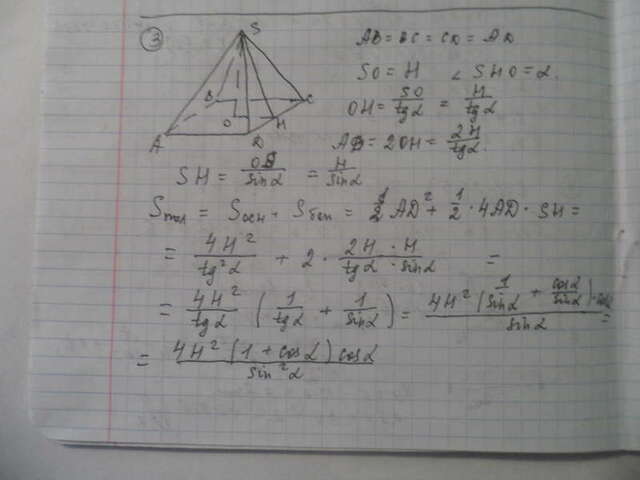 3
S
B
C
O
H
A
D
AB = BC = CD = AD
SO = H ∠ SHO = α.
OH = SO/tgα = H/tgα
AB = 2OH = 2H/tgα.
SH = OS/sinα = H/sinα
Sпол = Sосн + Sбок = AD² + 1/2 · 4AD · SH =
= 4H²/tg²α + 2 · 2H · H/tgα · sinα =
= 4H²/tgα (1/tgα + 1/sinα) = 4H² (1/sinα + cosα/sinα) · cosα/sinα =
= 4H² (1 + cosα) cosα/sin²α